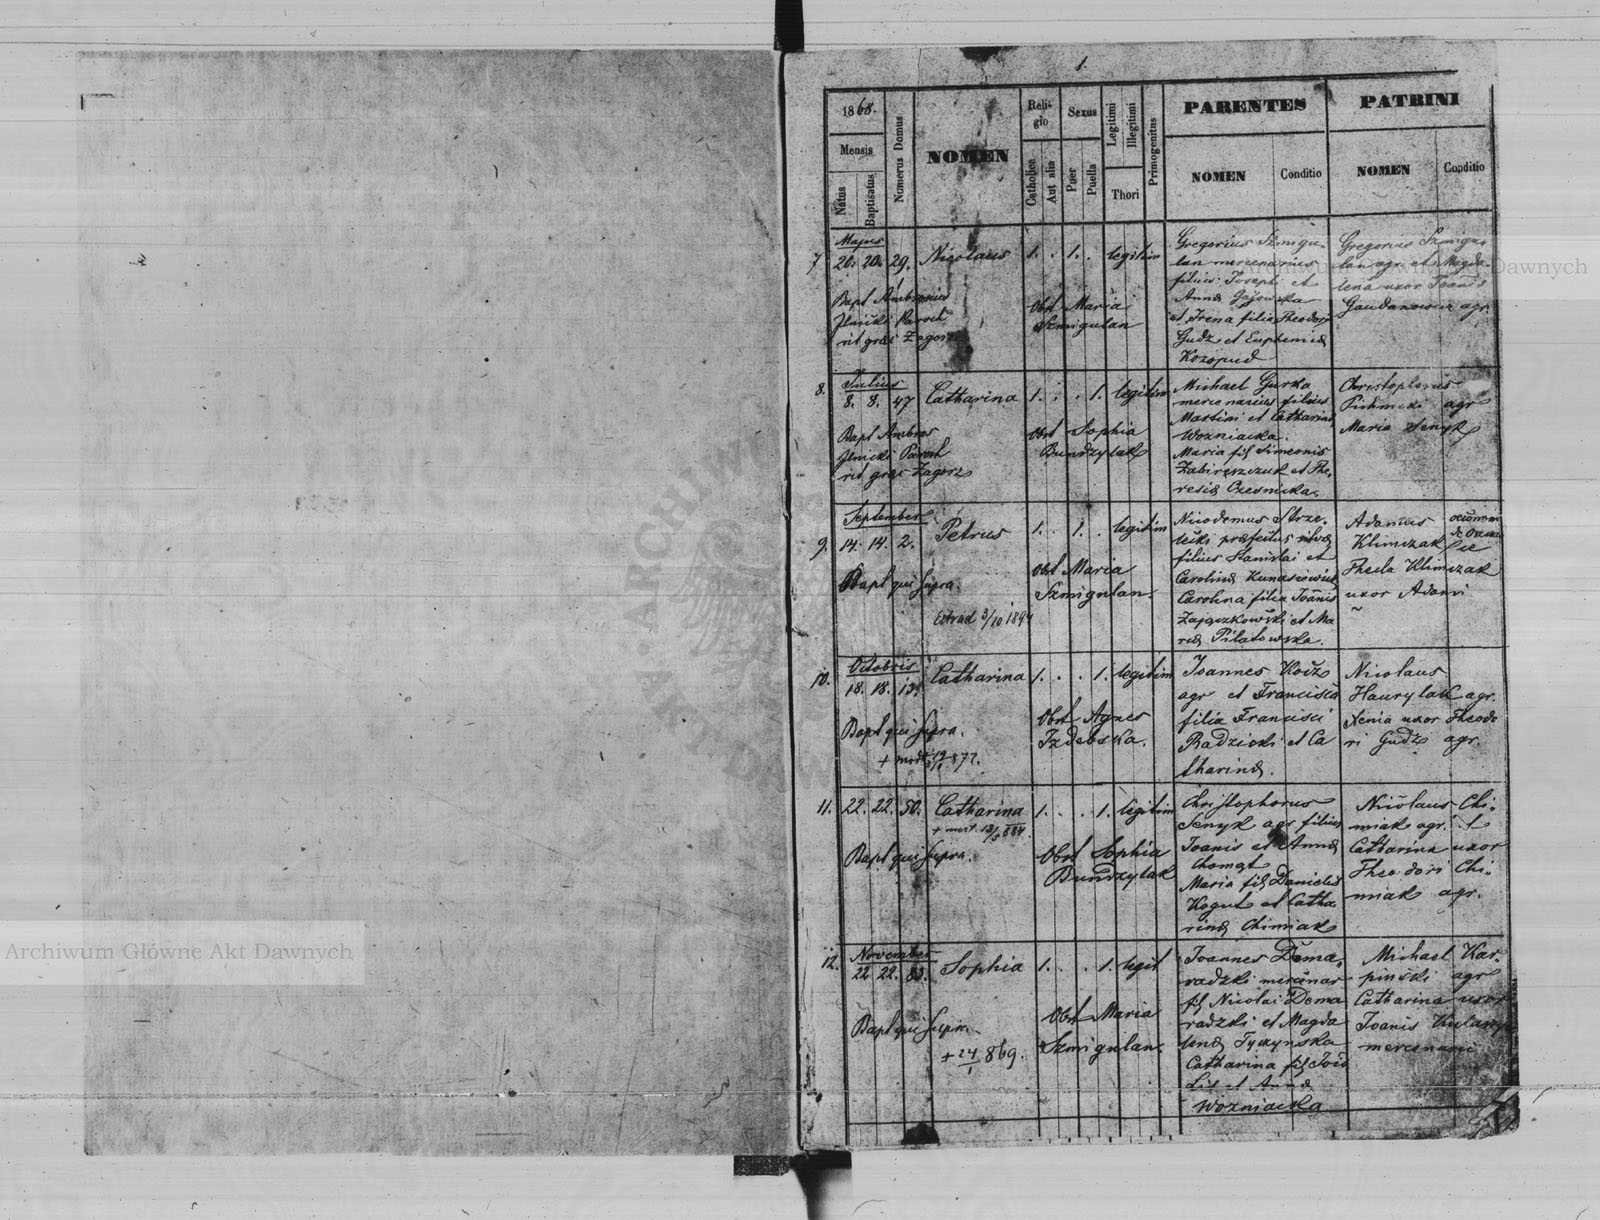 1.
1868.
Mensis
Natus
Baptisatus
Numerus Domus
NOMEN
Religio
Catholica
Aut alia
Sexus
Puer
Puella
Legitimi
Illegitimi
Thori
Primogenitus
PARENTES
NOMEN
Conditio
PATRINI
NOMEN
Conditio
7
Majus
20. 20. 29. Nicolaus 1. . 1. . legitim
Bapt Ambrosius
Ilnicki Paroch
rit græc Zagorz
Obst Maria
Szmigulan
Gregorius Szmigu-
lan mercenarius
filius Josephi et
Anna
et Irena filia Theodori
Gudz et Euphemiæ
Kozopud
Gregorius Szmigu-
lan agr et Magda-
lena uxor Joanis
agr.
8.
Julius
8. 8. 47 Catharina 1. . . 1. legitim
Bapt Ambros
Ilnicki Paroch
rit græc Zagorz
Obst Sophia
Bundzylak
Michael Gurka
mercenarius filius
Martini et Catharinæ
Wozniacka.
Maria fil Simeonis
et The-
resiæ Czesnicka.
Christophorus
agr
Maria Senyk
9.
September
14. 14. 2. Petrus 1. . 1. . legitim
Bapt qui supra.
Extrad 3/10 1894
Obst Maria
Szmigulan.
Nicodemus Strze-
lecki præfectus silvæ
filius Stanislai et
Carolinæ
Carolina filia Joanis
Zajączkowski et Ma-
riæ Pilatowska.
Adamus
Klimczak
Thecla Klimczak
uxor Adami
10.
Octobris
18. 18. 13. Catharina 1. . . 1. legitim
Bapt qui supra.
Obst Agnes
Izdebska.
Joannes
agr et Francisca
filia Francisci
Radzicki et Ca
tharinæ.
Nicolaus
Hawrylak agr.
Xenia uxor Theodo
ri Gudz agr.
11. 22. 22. 50. Catharina 1. . . 1. legitim
+ mort 13/5 884
Bapt qui supra.
Obst Sophia
Bundzylak
Christophorus
Senyk agr filius
Joanis et Annæ
Chomąt
Maria fil Danielis
Kogut et Catha
rinæ Chimiak
Nicolaus Chi-
miak agr. et
Catharina uxor
Theodori Chi-
miak agr.
12.
November
22. 22. 83. Sophia 1. . . 1. legit
Bapt qui supra.
+ 24/1 869.
Obst Maria
Szmigulan.
Joannes Dema-
radzki mercenar
fil Nicolai Dema
radzki et Magda
lenæ Tyczynska
Catharina fil
et Annæ
Wozniacka
Michael Kar-
pinski agr
Catharina uxor
Joanis
mercenarii
Archiwum Główne Akt Dawnych
Archiwum Główne Akt Dawnych